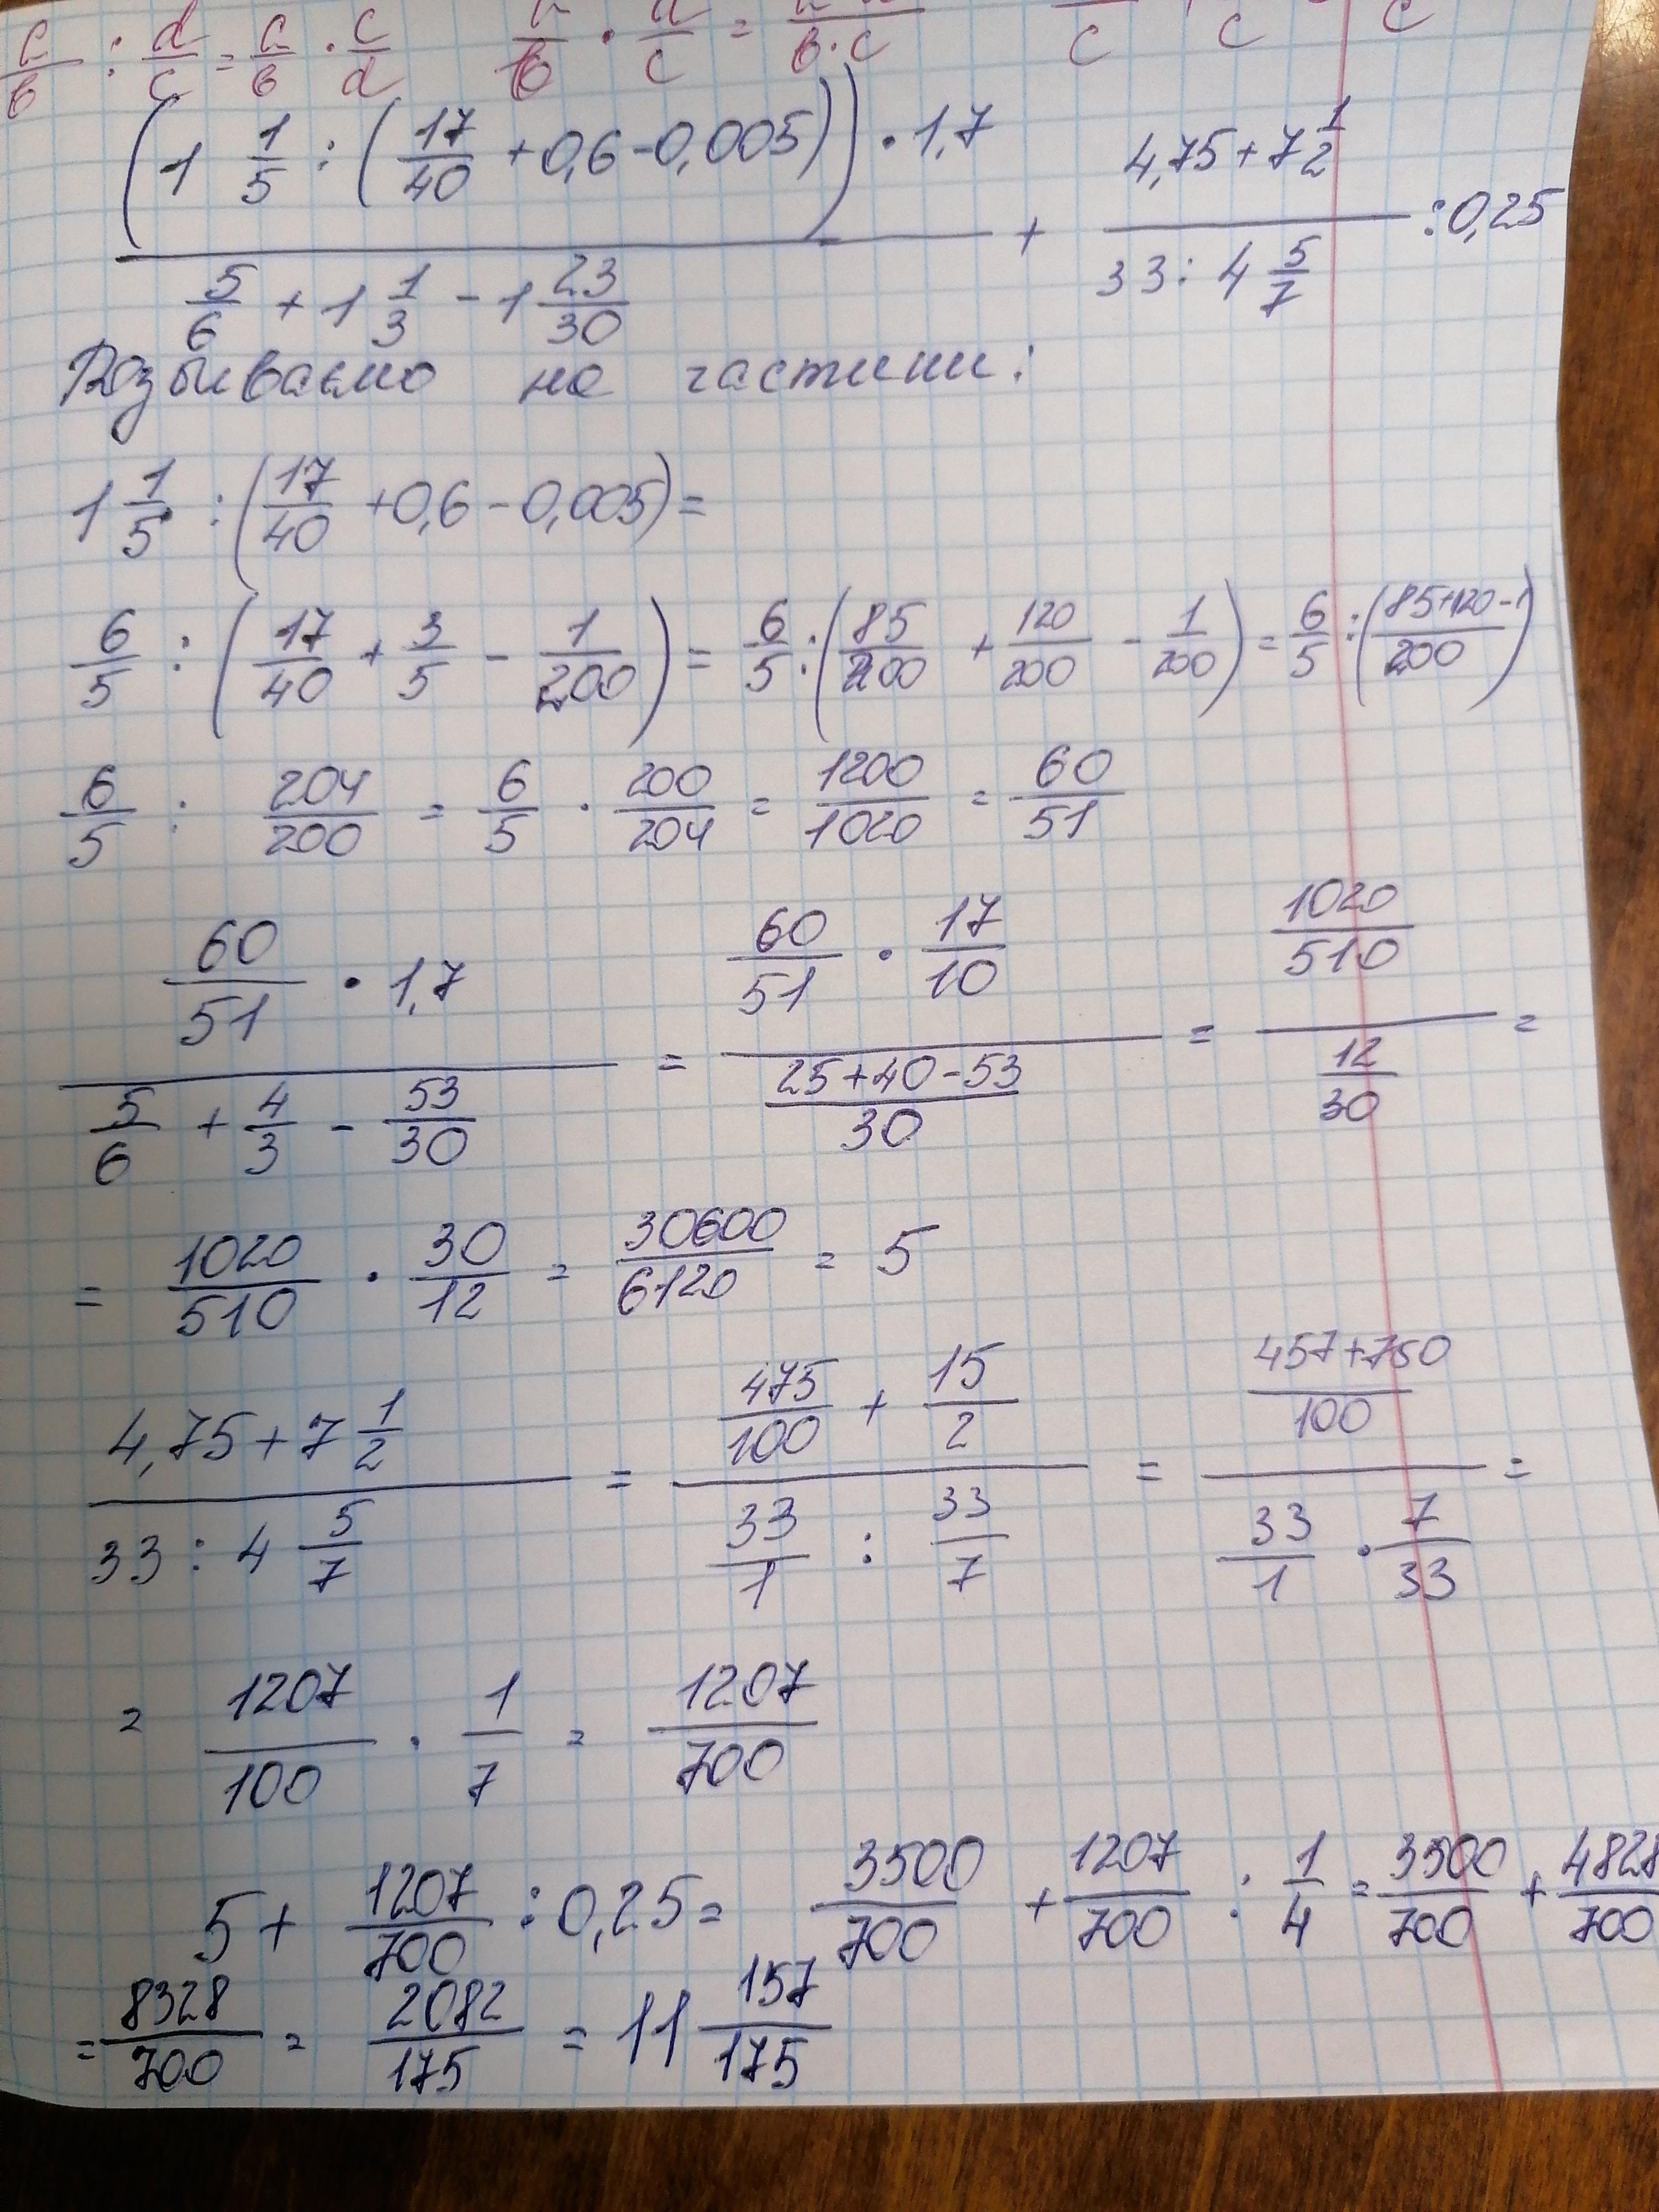 a/в : d/c = a/в · c/d
(1 1/5 : (17/40 + 0,6 - 0,005)) · 1,7 / (5/6 + 1 1/3 - 1 23/30) + (4,75 + 7 1/2) / (33 : 4 5/7) : 0,25
Розбиваємо на частини:
1 1/5 : (17/40 + 0,6 - 0,005) =
6/5 : (17/40 + 3/5 - 1/200) = 6/5 : (85/200 + 120/200 - 1/200) = 6/5 : (85+120-1/200)
6/5 : 204/200 = 6/5 · 200/204 = 1200/1020 = 60/51
(60/51 · 1,7) / (5/6 + 4/3 - 53/30) = (60/51 · 17/10) / (25+40-53/30) = (1020/510) / (12/30) =
= 1020/510 · 30/12 = 30600/6120 = 5
(4,75 + 7 1/2) / (33 : 4 5/7) = (475/100 + 15/2) / (33/1 : 33/7) = (457+750/100) / (33/1 · 7/33) =
= 1207/100 · 1/7 = 1207/700
5 + 1207/700 : 0,25 = 3500/700 + 1207/700 : 1/4 = 3500/700 + 4828/700
= 8328/700 = 2082/175 = 11 157/175